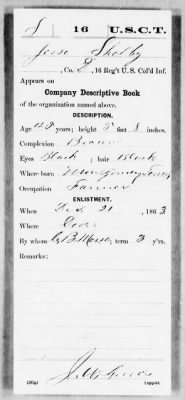 S 16 U.S.C.T.
Jesse Shelby
, Co. D, 16 Reg't U. S. Col'd Inf.
Appears on
Company Descriptive Book
of the organization named above.
DESCRIPTION.
Age 48 years; height 5 feet 8 inches.
Complexion Brown
Eyes Black; hair Black
Where born Montgomery Tenn
Occupation Farmer
ENLISTMENT.
When Dec 21, 1863
Where
By whom term 3 y'rs.
Remarks:
Copyist.